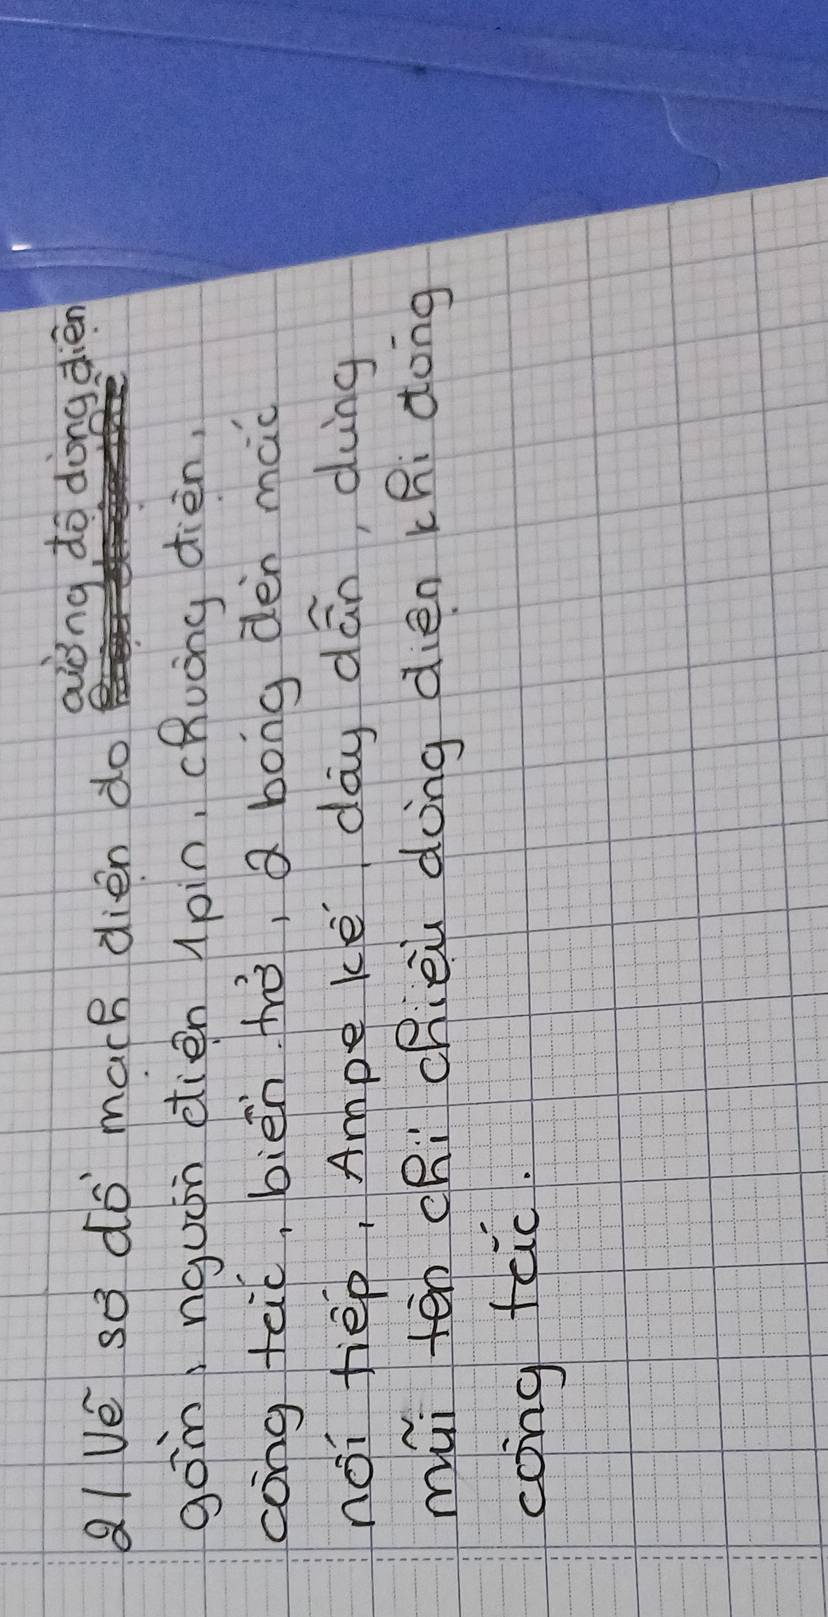 2/ Vẽ sơ đồ mạch điện đo cường độ dòng điện
gồm, nguồn điện 1pin, chuông điện,
công tắc, biến trở, 2 bóng đèn mắc
nối tiếp, Ampe kế, dây dẫn, dùng
mũi tên chỉ chiều dòng điện khi đóng
công tắc.